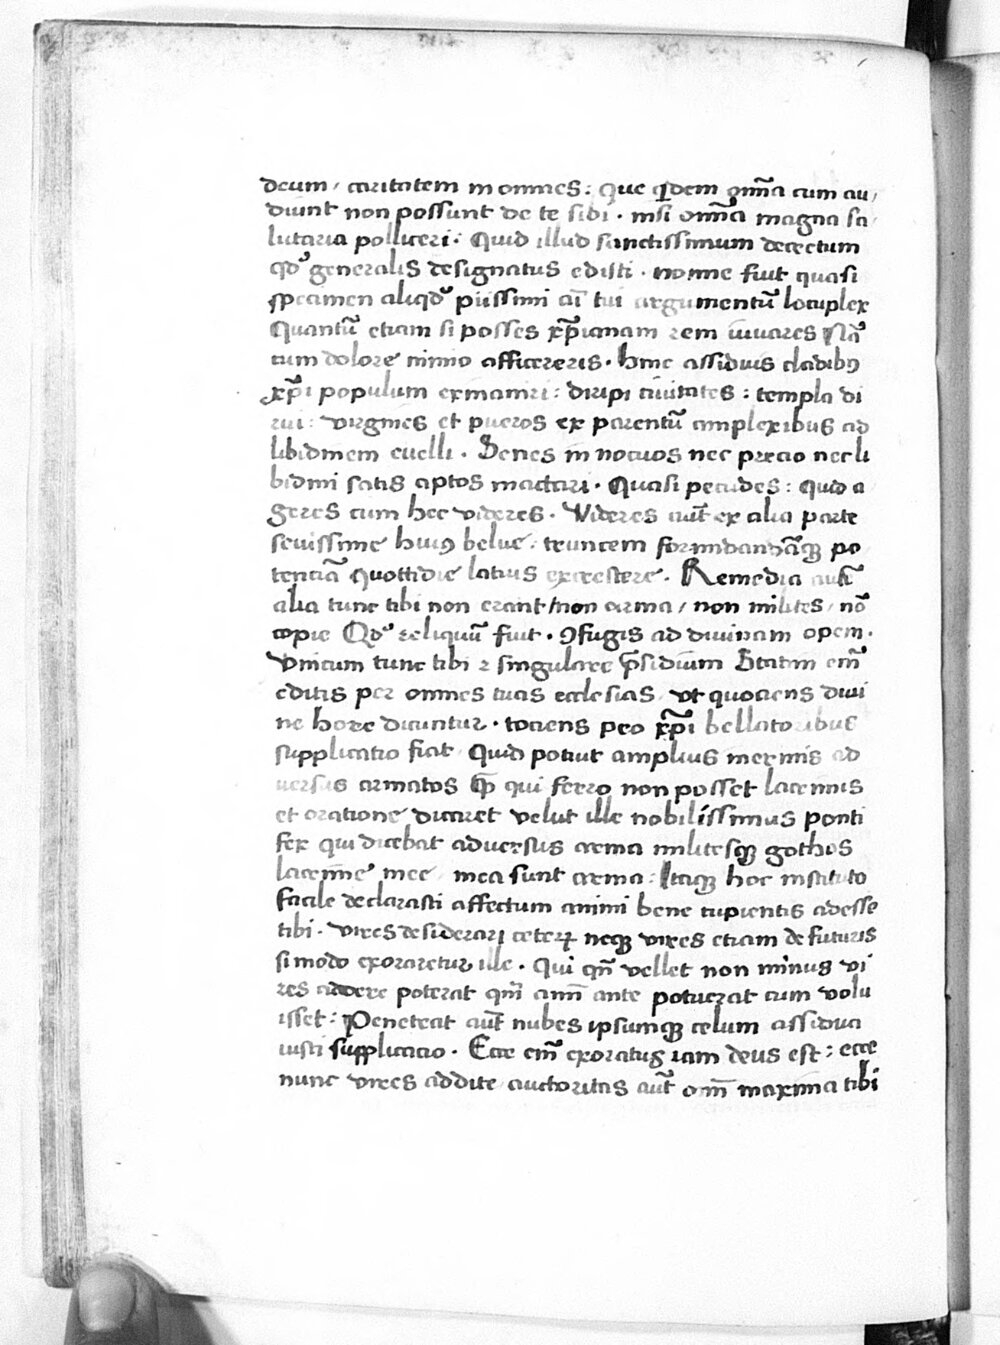 deum / caritatem in omnes : Que qͥdem om̅ia cum au/
diunt non possunt de te sibi · nisi om̅ia magna sa/
lutaria polliceri : Quid illud sanctissimum decretum
qd̕ generalis designatus edisti · nonne fiut quasi
specimen aliqd̕ piissimi ai̅ tui argumentu̅ locuplex
Quantu̅ etiam si posses xp̅ianam rem iuuares Na̅
tum dolore nimio afficereris · hinc assiduis cladibꝰ
xp̅i populum exinaniri : diripi ciuitates : templa di
rui : virgines et pueros ex parentu̅ amplexibus ad
libidinem euelli · Senes in nocuos nec precio nec li
bidini satis aptos mactari · Quasi pecudes : Quid a
geres cum hec videres · Videres aut̅ ex alia parte
seuissime huiꝰ belue : trucem formidanda̅qꝫ po
tencia̅ quottidie latius excrescere · Remedia aut̅
alia tunc tibi non erant / non arma / non milites / no̅
copie Qd̕ reliquu̅ fiut · ꝯfugis ad diuinam opem ·
Vnicum tunc tibi ⁊ singulare p̅sidium Statim em̅
editis per omnes tuas ecclesias / vt quociens diui
ne hore dicuntur · tociens pro xp̅i bellatoribus
supplicatio fiat / Quid potiut amplius inermis ad
uersus armatos qꝫ̅ qui ferro non posset lacrimis
et oratione dicaret velut ille nobilissimus ponti
fex qui dicebat aduersus arma militesqꝫ gothos
lacrime mee / mea sunt arma : Itaqꝫ hoc instituto
facile declarasti affectum animi bene cupientis adesse
tibi · vires desiderari ceterꝝ neqꝫ vires etiam de futuris
si modo exoraretur ille · Qui qn̅ vellet non minus vi
res addere poterat qm̅ ann̅ ante potuerat cum volu
isset : Penetrat aut̅ nubes ipsumqꝫ celum assidua
iusti supplicacio · Ecce em̅ exoratus iam deus est : ecce
nunc vires addite / auctoritas aut̅ om̅ maxima tibi